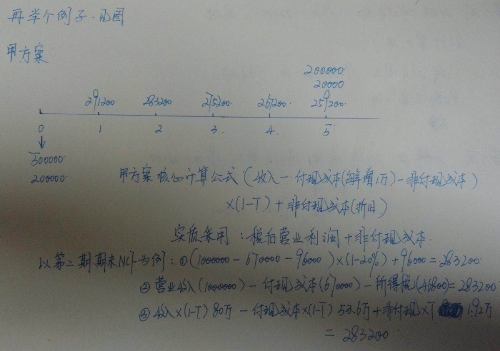 再举个例子.画图
甲方案
200000
20000
291200 283200 275200 267200 259200
0 1 2 3. 4. 5
500000
200000
甲方案核心计算公式(收入-付现成本(每年增1万)-非付现成本)
×(1-T)+非付现成本(折旧)
实质采用:税后营业利润+非付现成本.
以第二期期末NCF为例:①(1000000-670000-96000)×(1-20%)+96000=283200
②营业收入(1000000)-付现成本(670000)-所得税(46800)=283200
③收入×(1-T)80万-付现成本×(1-T)53.6万+非付现×T 1.92万
=283200